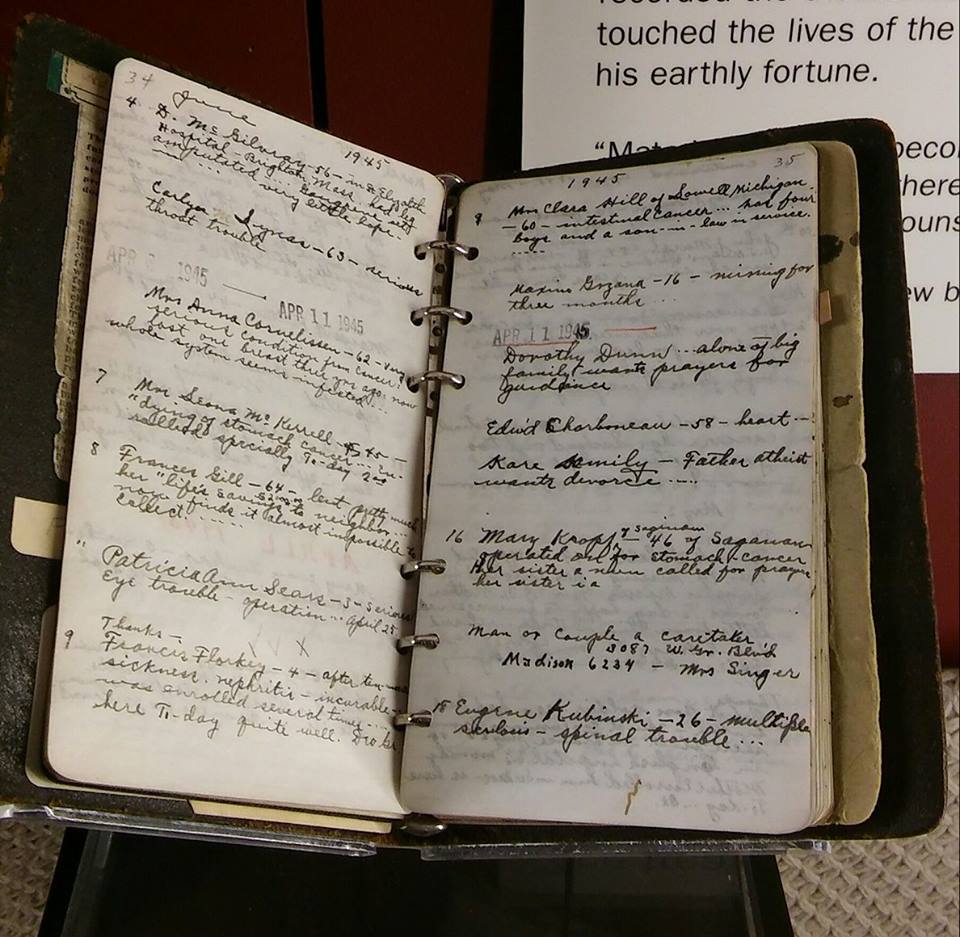 34
June
1945
4 D. McGilvray - 56 - in St Elizabeth
Hospital - Brighton Mass. had leg
amputated very little hope -
Carlyn - 63 - serious
throat trouble
APR 1945 — APR 11 1945
Mrs Anna Cornelissen - 62 - very
serious condition from cancer,
lost one breast three yrs ago: now
whole system seems infested...
7 Mrs Leona McKerrell - 45 -
"dying of stomach cancer
specially To-day
8 Frances Gill - 64 - lent pretty much
her "life's savings to neighbor...
now finds it almost impossible to
collect .....
" Patricia Ann Sears - 3 - serious
Eye trouble - operation... April 25
Thanks -
9 Francis Florkey - 4 - after ten
sickness, nephritis - incurable -
was enrolled several times...
here To-day quite well. Deo Gr
1945
35
9 Mrs Clara Hill of Lowell Michigan.
- 60 - intestinal cancer... has four
boys and a son-in-law in service.
.....
Maxine - 16 - missing for
three months ...
APR 11 1945.
Dorothy Dunn ... alone of big
family wants prayers for
guidance
Edw'd Charboneau - 58 - heart ...
Kare Emily - Father atheist
wants divorce .....
of Saginaw
16 Mary Kropf - 46 of Sagawan
operated on for stomach cancer
Her sister a nun called for prayer
her sister is a
Man or Couple a caretaker
8087 W. Gr. Blv'd
Madison 6234 - Mrs Singer
18 Eugene Kubinski - 26 - multiple
- spinal trouble ...
recorded the
touched the lives of the
his earthly fortune.
becom
there
ouns
ew b